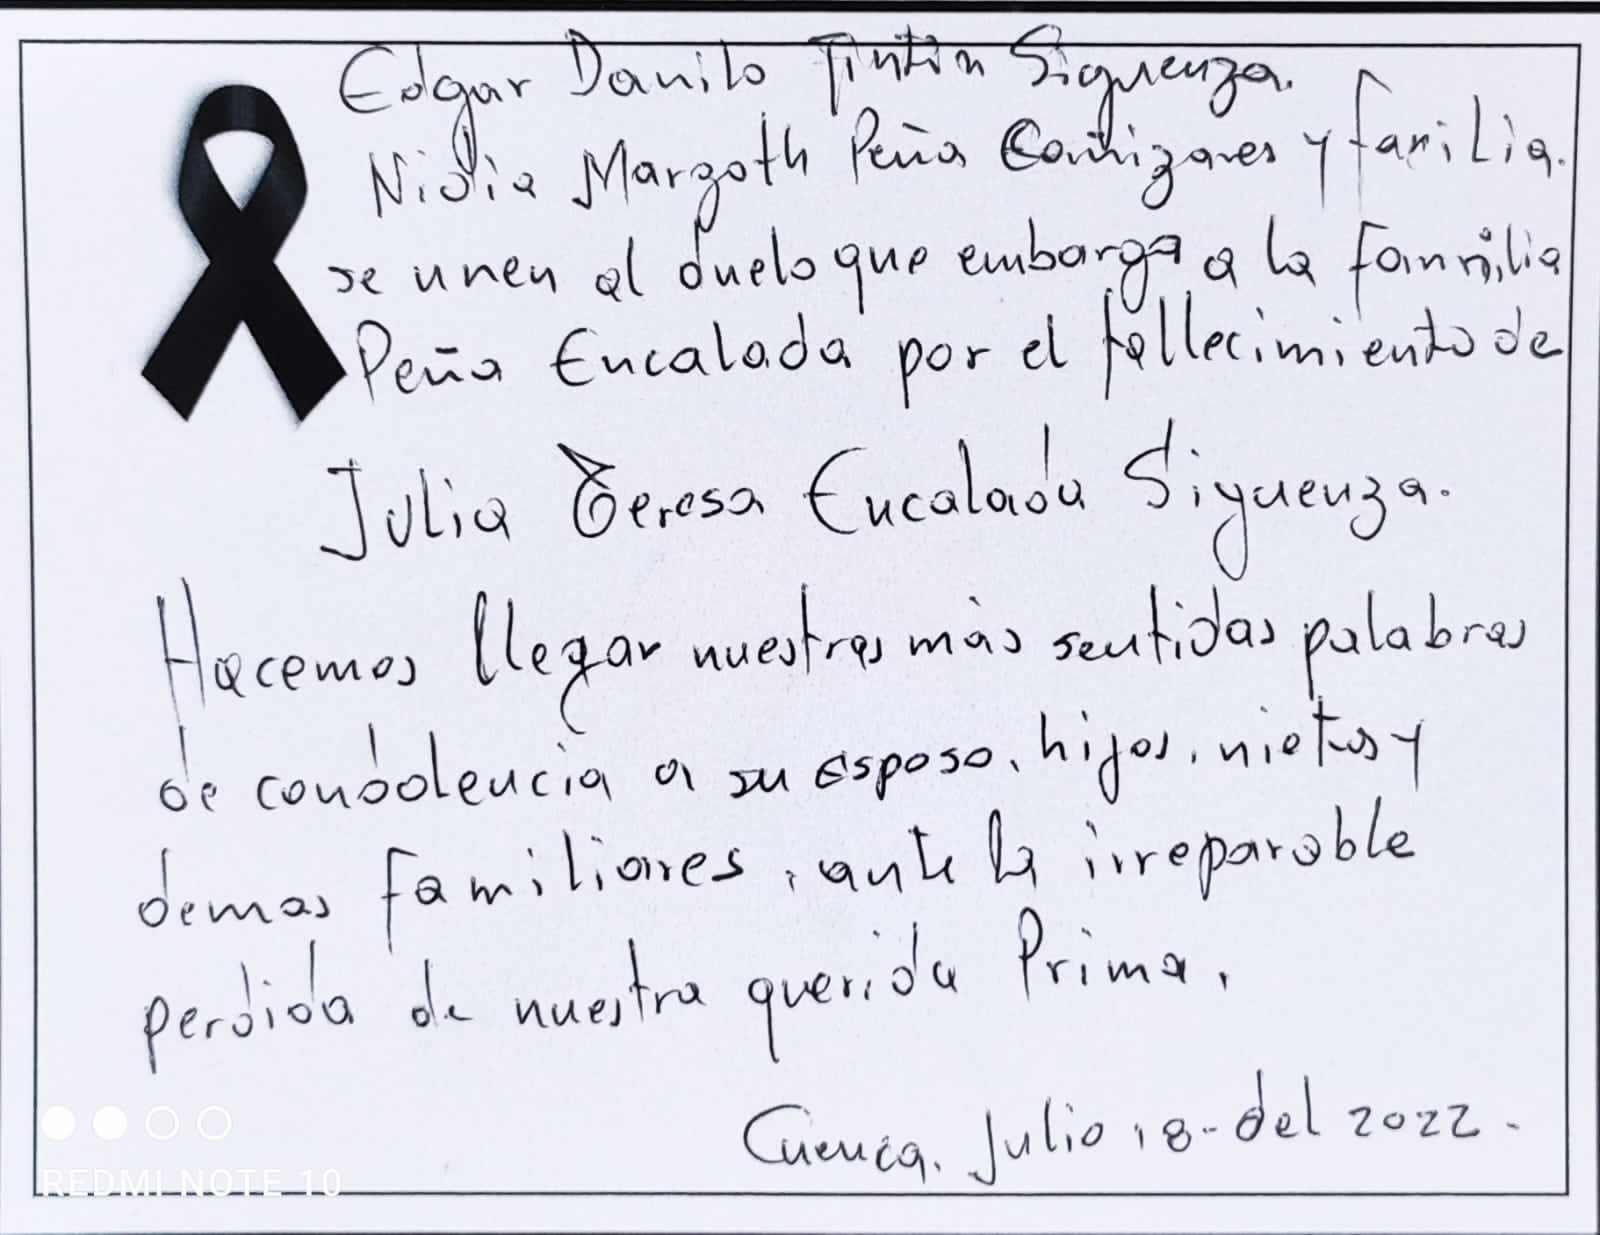 Edgar Danilo Tintin Siguenza.
Nidia Margoth Peña Cañizares y familia.
se unen al duelo que embarga a la familia
Peña Encalada por el fallecimiento de
Julia Teresa Encalada Siguenza.
Hacemos llegar nuestras más sentidas palabras
de condolencia a su esposo, hijos, nietos y
demas familiares, ante la irreparable
perdida de nuestra querida Prima,
Cuenca, Julio 18- del 2022.
REDMI NOTE 10